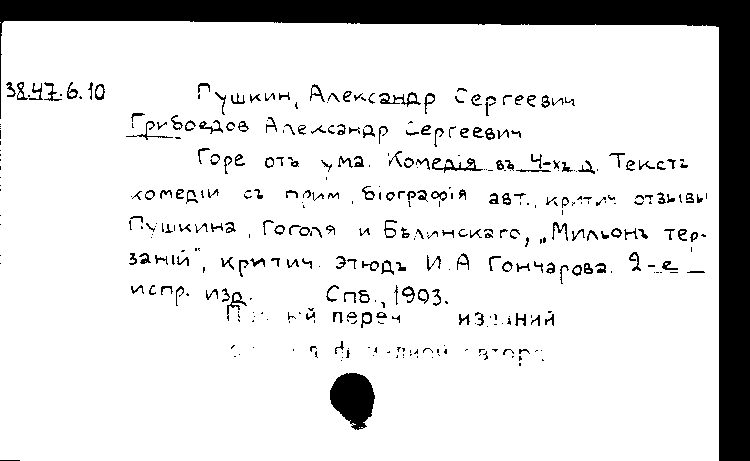 38.47.6.10 Пушкин, Александр Сергеевич
Грибоедов Александр Сергеевич
Горе отъ ума. Комедія въ 4-хъ д. Текстъ
комедіи съ прим., біографія авт., критич. отзывы
Пушкина, Гоголя и Бѣлинскаго, „Мильонъ тер-
заній", критич. этюдъ И.А Гончарова. 2-е
испр. изд. Спб., 1903.
изданий